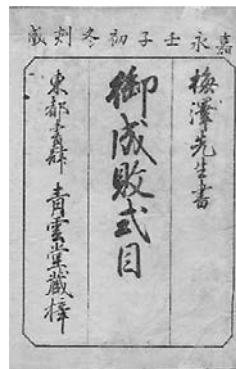 嘉永壬子初冬刻成
梅澤先生書
御成敗式目
東都書肆 青雲堂藏梓